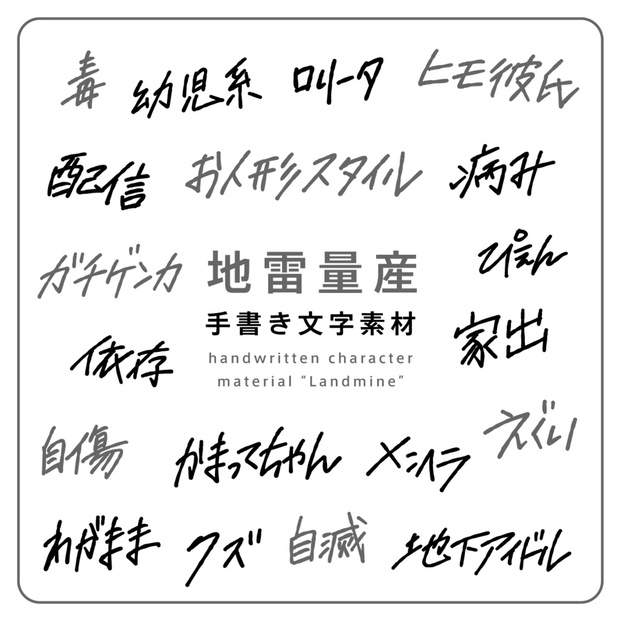 毒
幼児系
ロリータ
ヒモ彼氏
配信
お人形スタイル
病み
ガチゲンカ
地雷量産
手書き文字素材
handwritten character
material "Landmine"
ぴえん
依存
家出
自傷
かまってちゃん
メンヘラ
えぐい
わがまま
クズ
自滅
地下アイドル